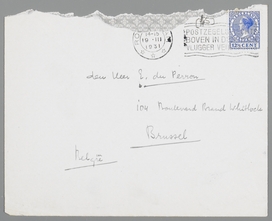 19 III
1931
POSTZEGELS
BOVEN IN DE
VLUGGER VE
12½ CENT
den Heer E. du Perron
104 Boulevard Brand Whitlock
Brussel
België